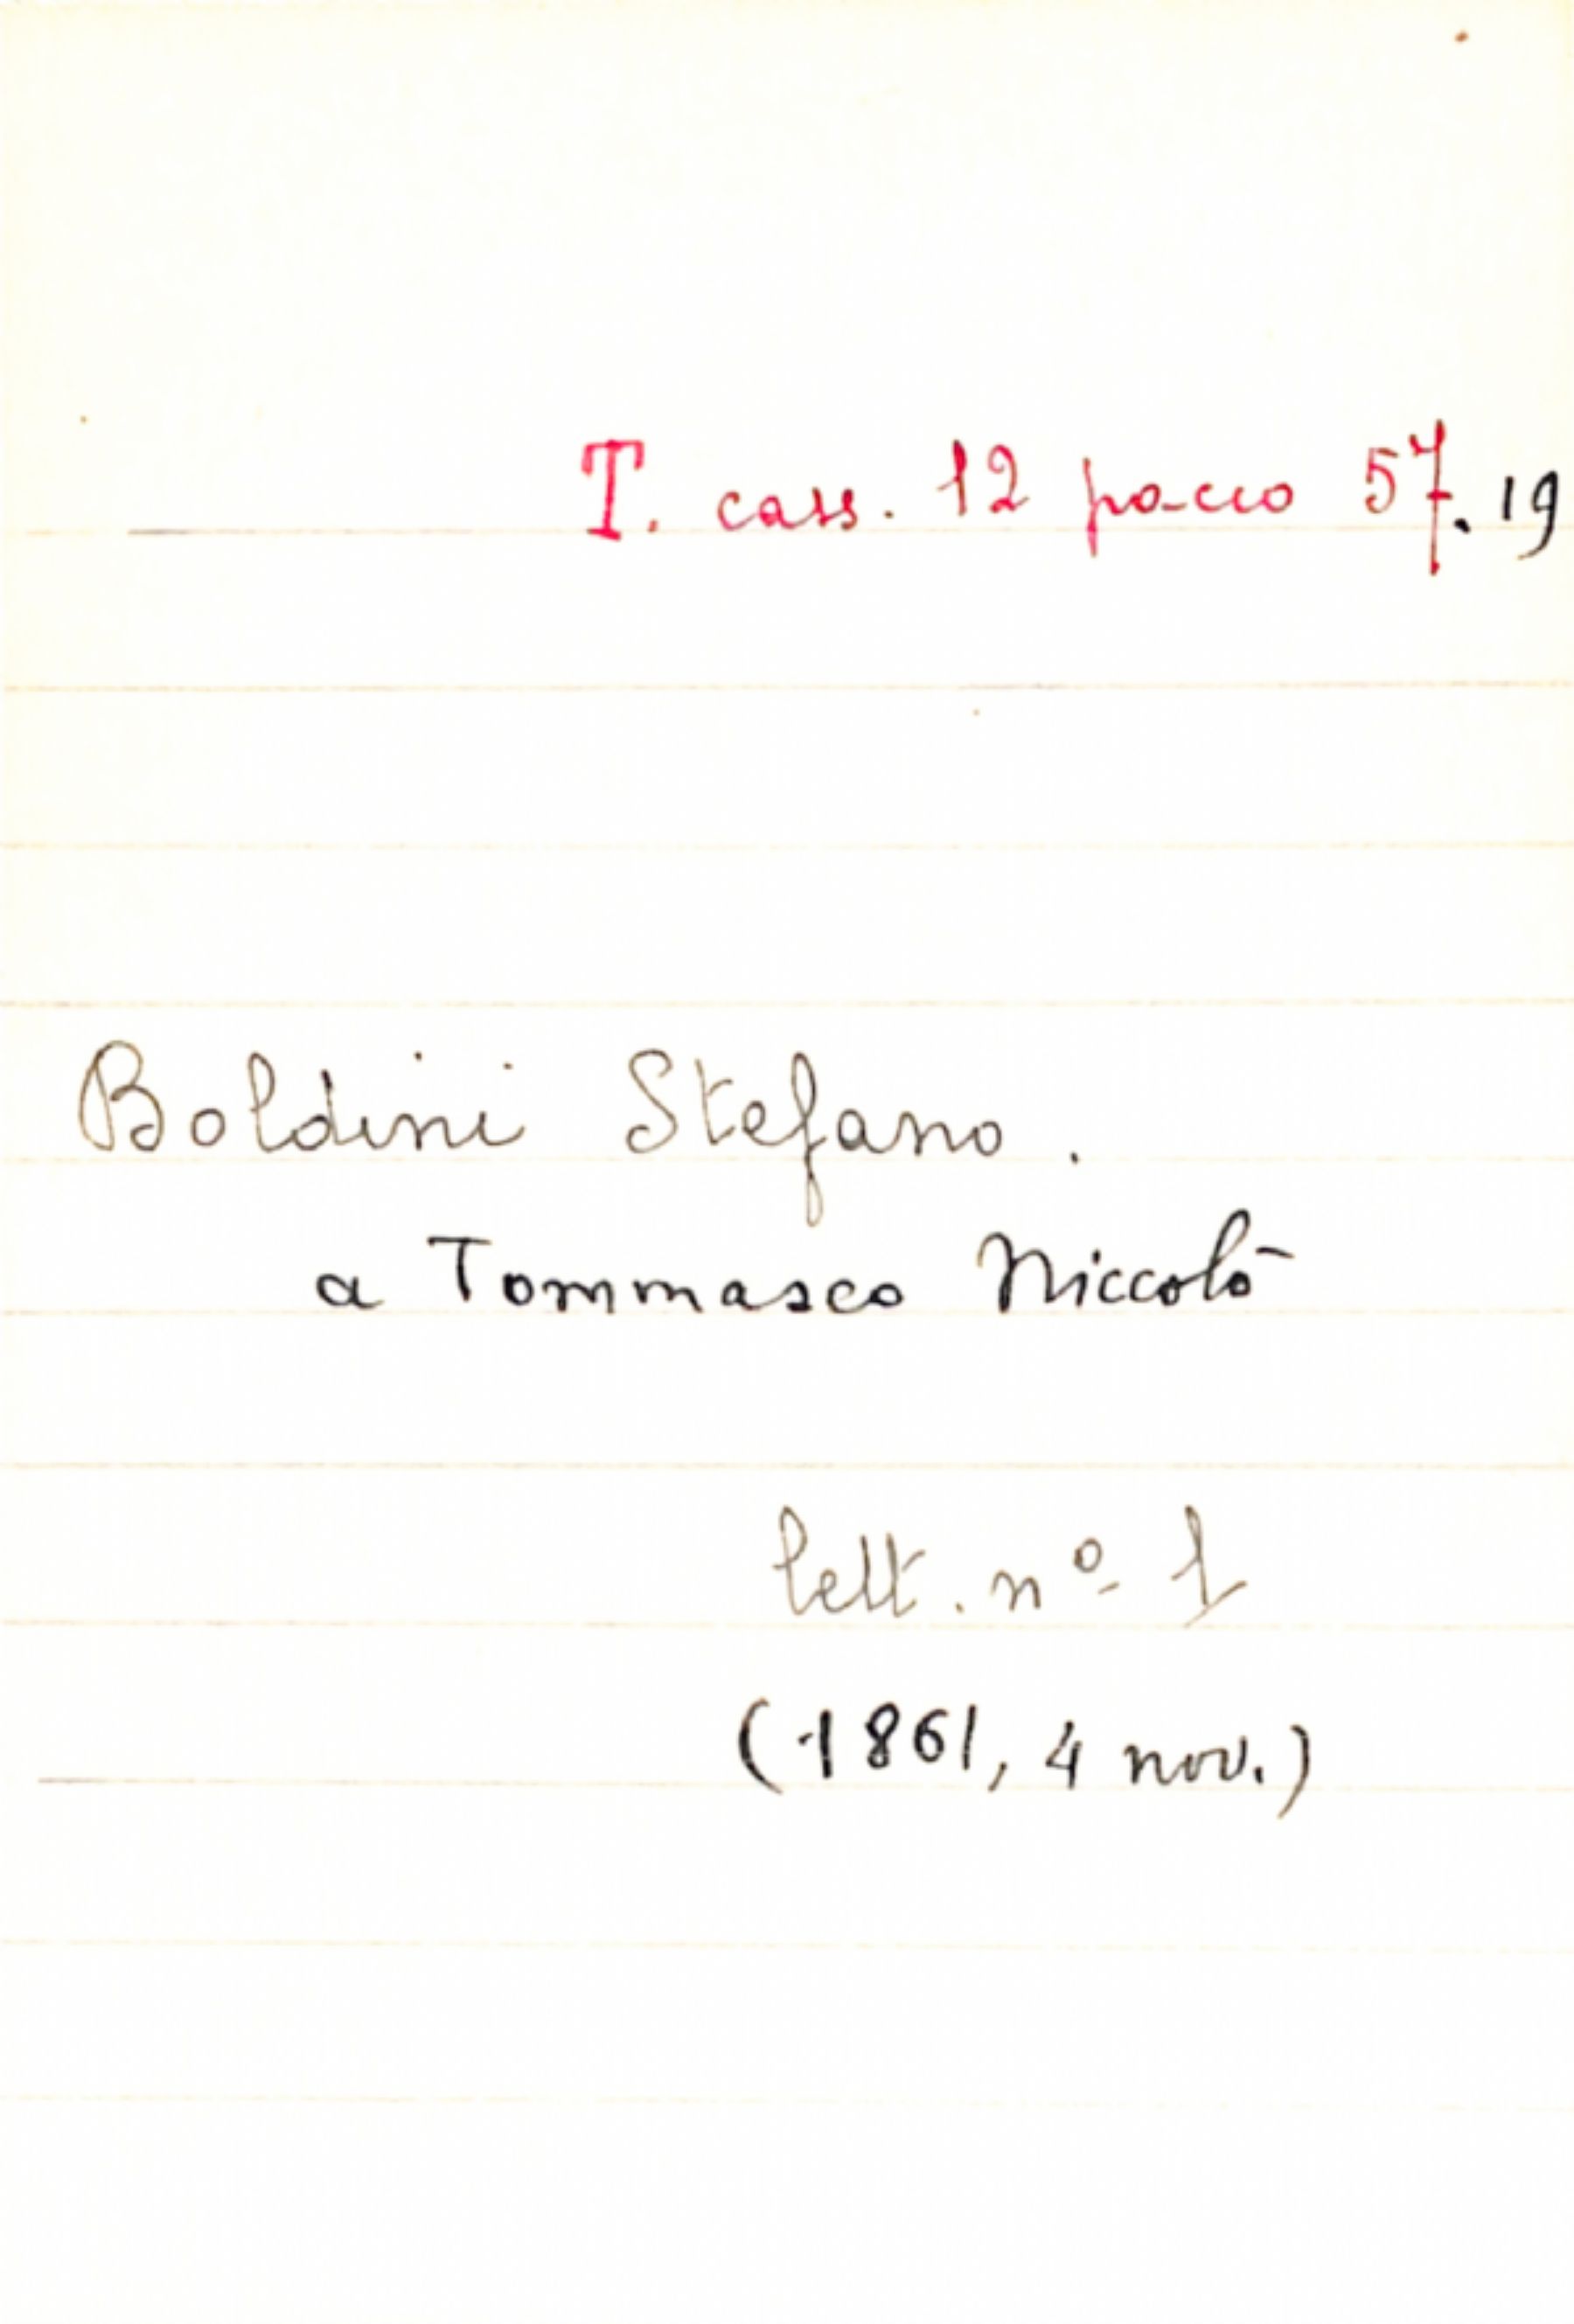 T. cass. 12 pacco 57.19
Boldini Stefano.
a Tommaseo Niccolò
lett. nº 1
(1861, 4 nov.)